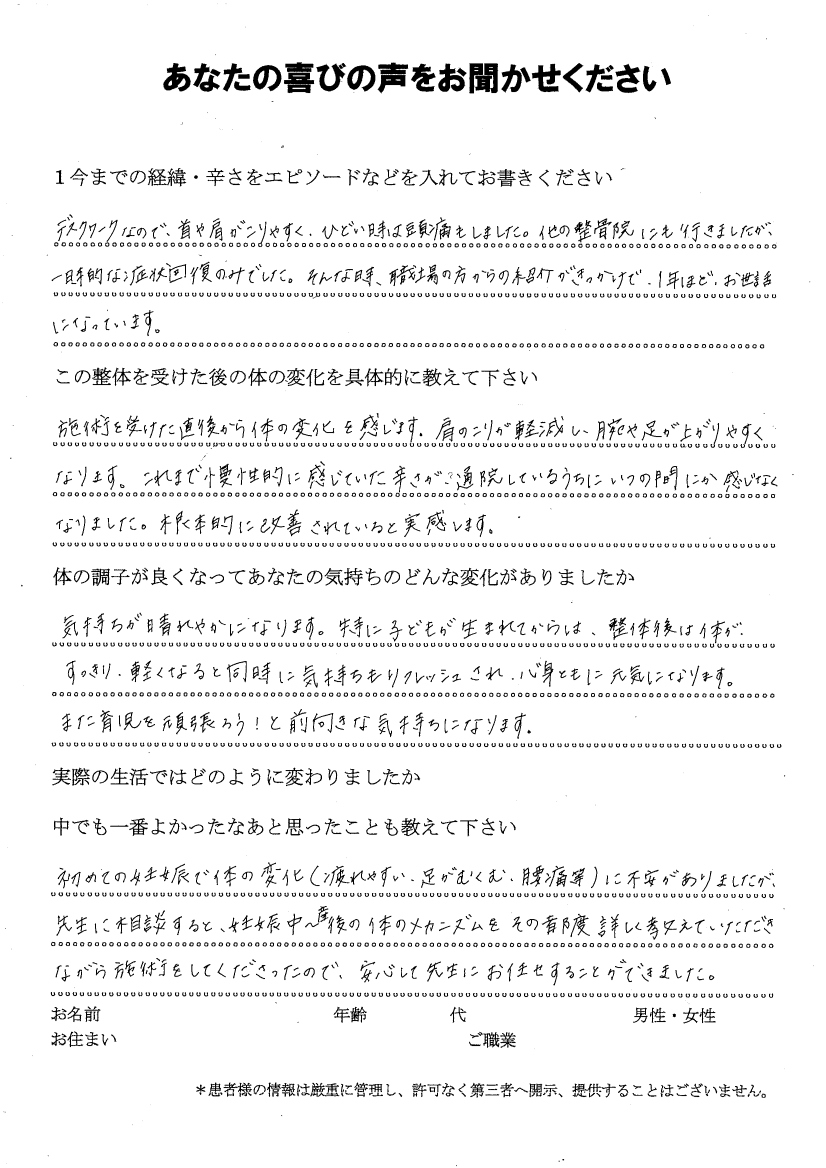 あなたの喜びの声をお聞かせください
1今までの経緯・辛さをエピソードなどを入れてお書きください
デスクワークなので、首や肩がこりやすく、ひどい時は頭痛もしました。他の整骨院にも行きましたが、
一時的な症状回復のみでした。そんな時、職場の方からの紹介がきっかけで、1年ほど、お世話
になっています。
この整体を受けた後の体の変化を具体的に教えて下さい
施術を受けた直後から体の変化を感じます。肩のこりが軽減し、腕や足が上がりやすく
なります。これまで慢性的に感じていた辛さが、通院しているうちにいつの間にか感じなく
なりました。根本的に改善されていると実感します。
体の調子が良くなってあなたの気持ちのどんな変化がありましたか
気持ちが晴れやかになります。特に子どもが生まれてからは、整体後は体が
すっきり、軽くなると同時に気持ちもリフレッシュされ、心身ともに元気になります。
また育児を頑張ろう!と前向きな気持ちになります。
実際の生活ではどのように変わりましたか
中でも一番よかったなあと思ったことも教えて下さい
初めての妊娠で体の変化(疲れやすい、足がむくむ、腰痛等)に不安がありましたが、
先生に相談すると、妊娠中~産後の体のメカニズムをその都度詳しく教えていただき
ながら施術をしてくださったので、安心して先生にお任せすることができました。
お名前 年齢 代 男性・女性
お住まい ご職業
*患者様の情報は厳重に管理し、許可なく第三者へ開示、提供することはございません。